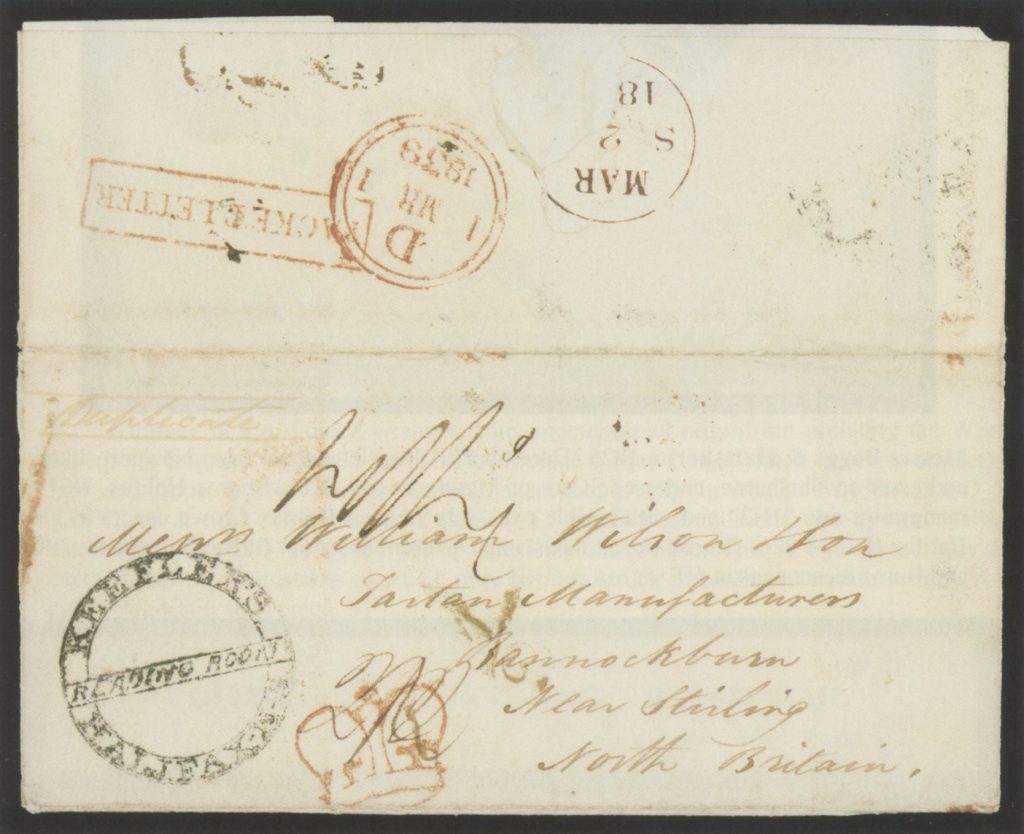 MAR
S 2
18
PACKET LETTER
D
1 MR 1
1839
Duplicate
Messrs William Wilson & Son
Tartan Manufacturers
Bannockburn
Near Stirling
North Britain.
KEEFLER'S
READING ROOM
HALIFAX